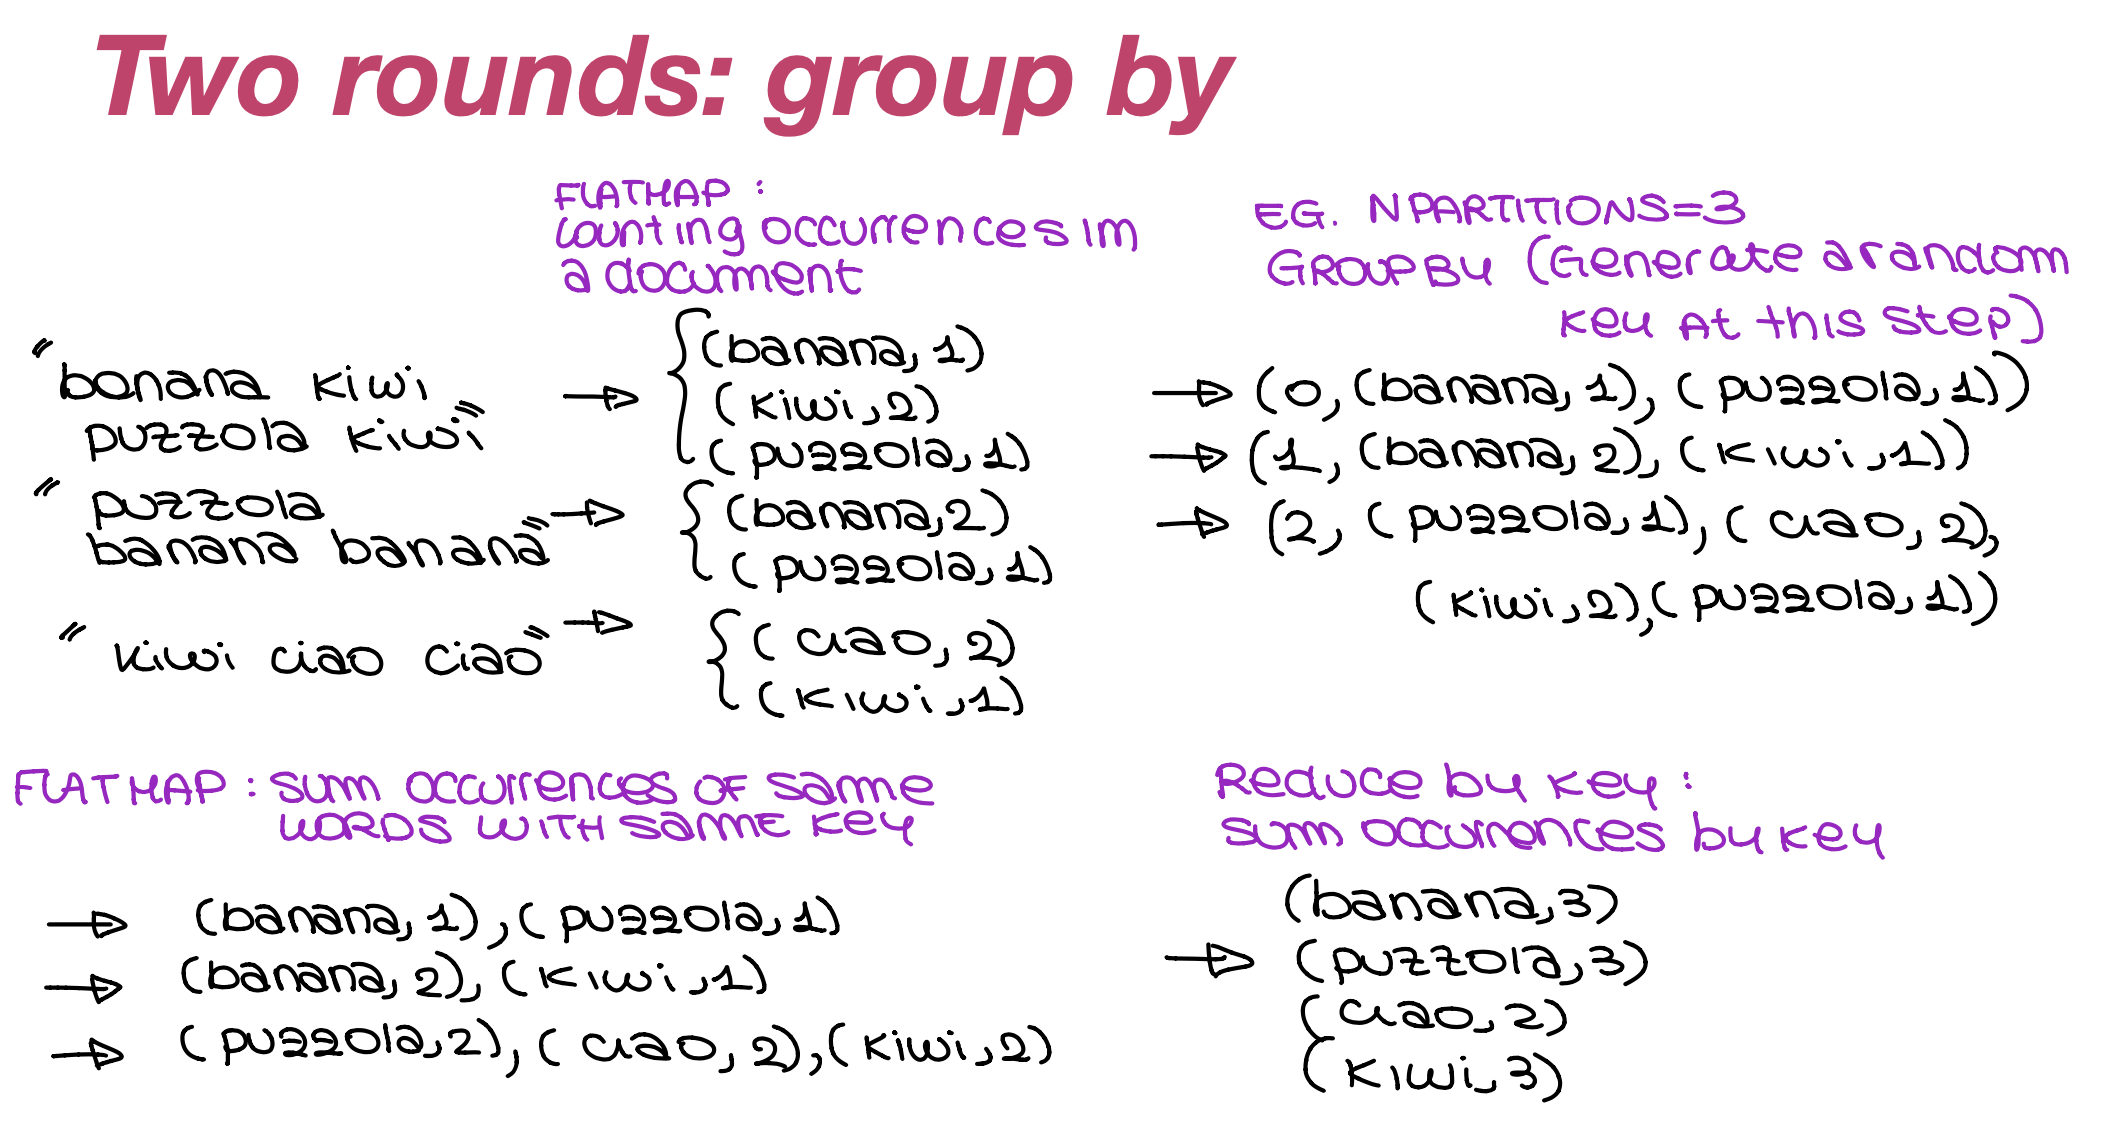 Two rounds: group by
FLATMAP :
counting occurrences im
a document
"banana kiwi
puzzola kiwi"
"puzzola
banana banana"
"kiwi ciao ciao"
(banana, 1)
(kiwi, 2)
(puzzola, 1)
(banana, 2)
(puzzola, 1)
(ciao, 2)
(kiwi, 1)
EG. N PARTITIONS=3
GROUP BY (Generate a random
key At this step)
(0, (banana, 1), (puzzola, 1))
(1, (banana, 2), (kiwi, 1))
(2, (puzzola, 1), (ciao, 2),
(kiwi, 2), (puzzola, 1))
FLATMAP : sum occurrences of same
WORDS WITH same key
(banana, 1), (puzzola, 1)
(banana, 2), (kiwi, 1)
(puzzola, 2), (ciao, 2), (kiwi, 2)
Reduce by key :
sum occurrences by key
(banana, 3)
(puzzola, 3)
(ciao, 2)
(kiwi, 3)